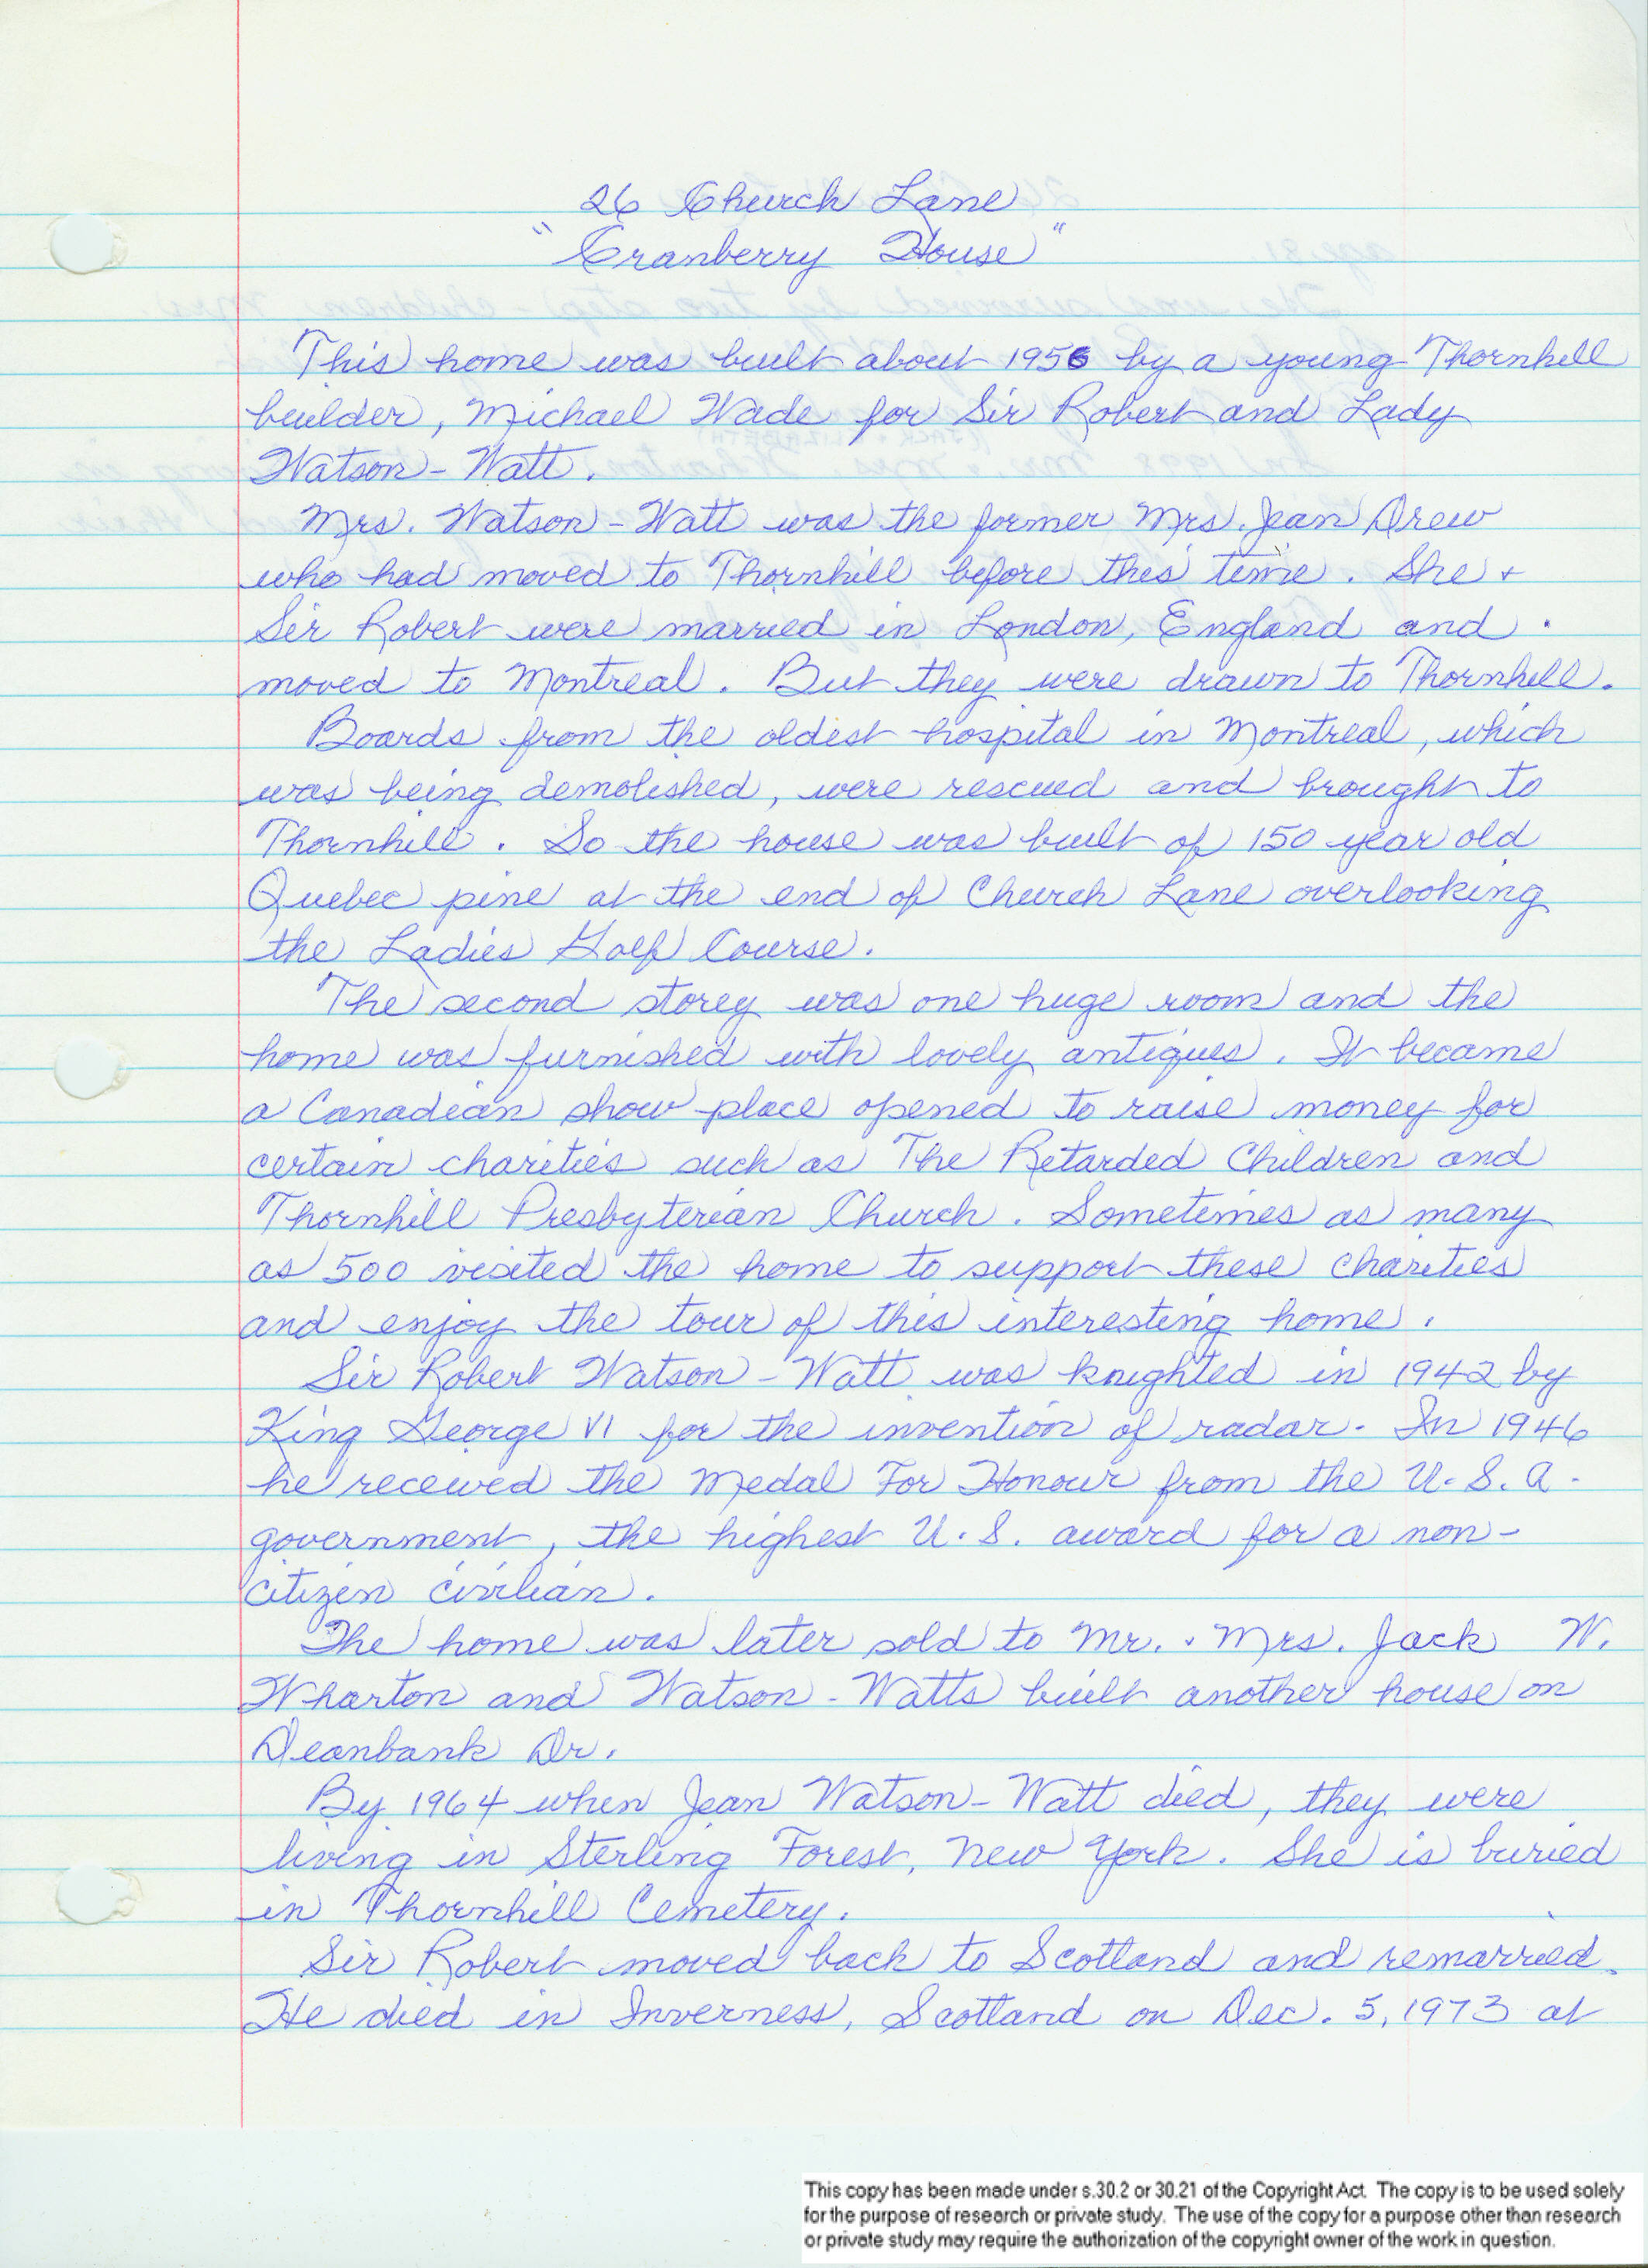 26 Church Lane
"Cranberry House"
This home was built about 1956 by a young Thornhill
builder, Michael Wade for Sir Robert and Lady
Watson-Watt.
Mrs. Watson-Watt was the former Mrs. Jean Drew
who had moved to Thornhill before this time. She +
Sir Robert were married in London, England and
moved to Montreal. But they were drawn to Thornhill.
Boards from the oldest hospital in Montreal, which
was being demolished, were rescued and brought to
Thornhill. So the house was built of 150 year old
Quebec pine at the end of Church Lane overlooking
the Ladies Golf Course.
The second storey was one huge room and the
home was furnished with lovely antiques. It became
a Canadian show place opened to raise money for
certain charities such as The Retarded Children and
Thornhill Presbyterian Church. Sometimes as many
as 500 visited the home to support these charities
and enjoy the tour of this interesting home.
Sir Robert Watson-Watt was knighted in 1942 by
King George VI for the invention of radar. In 1946
he received the Medal For Honour from the U.S.A.
government, the highest U.S. award for a non-
citizen civilian.
The home was later sold to Mr. + Mrs. Jack W.
Wharton and Watson-Watts built another house on
Deanbank Dr.
By 1964 when Jean Watson-Watt died, they were
living in Sterling Forest, New York. She is buried
in Thornhill Cemetery.
Sir Robert moved back to Scotland and remarried.
He died in Inverness, Scotland on Dec. 5, 1973 at
This copy has been made under s.30.2 or 30.21 of the Copyright Act. The copy is to be used solely
for the purpose of research or private study. The use of the copy for a purpose other than research
or private study may require the authorization of the copyright owner of the work in question.